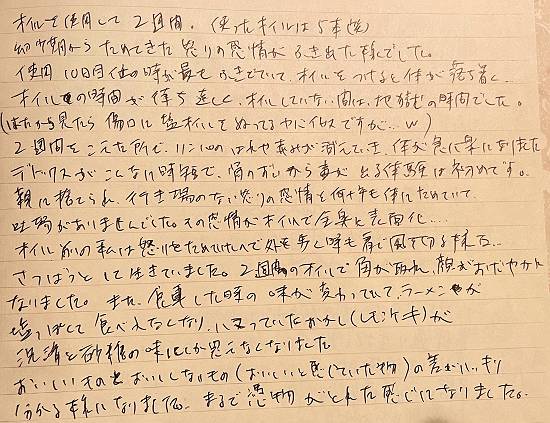 オイルを使用して2週間。使ったオイルは5本(笑)
幼少期からためてきた怒りの感情がふき出た様でした。
使用10日目位の時が最もふきでていて、オイルをつけると体が落ち着く。
オイルの時間が待ち遠しく、オイルしていない間は地獄の時間でした。
(はたから見たら傷口に塩オイルをぬってるヤバイ人ですが…w)
2週間をこえた所で、リンパのはれや赤みが消えていき、体が急に楽になりました
デトックスがこんなに時短で、角のオレから毒がとる体験は初めてです。
親に捨てられ、行き場のない怒りの感情を何十年も体にためていて
吐場がありませんでした。その感情がオイルで全身と表面化…。
オイル前の私は怒りをためていたので外を歩く時も肩で風を切る様な
さつばつとして生きていました。2週間のオイルで角が取れ、顔がおだやかに
なりました。また、食事した時の味が変わっていて、ラーメンが
塩っぱくて食べれなくなり、ハマっていたおかし(レモンケーキ)が
洗剤と砂糖の味にしか思えなくなりました
おいしいものとおいしくないもの(おいしいと感じていた物)の差がハッキリ
分かる様になりました。まるで憑物がとれた感じになりました。